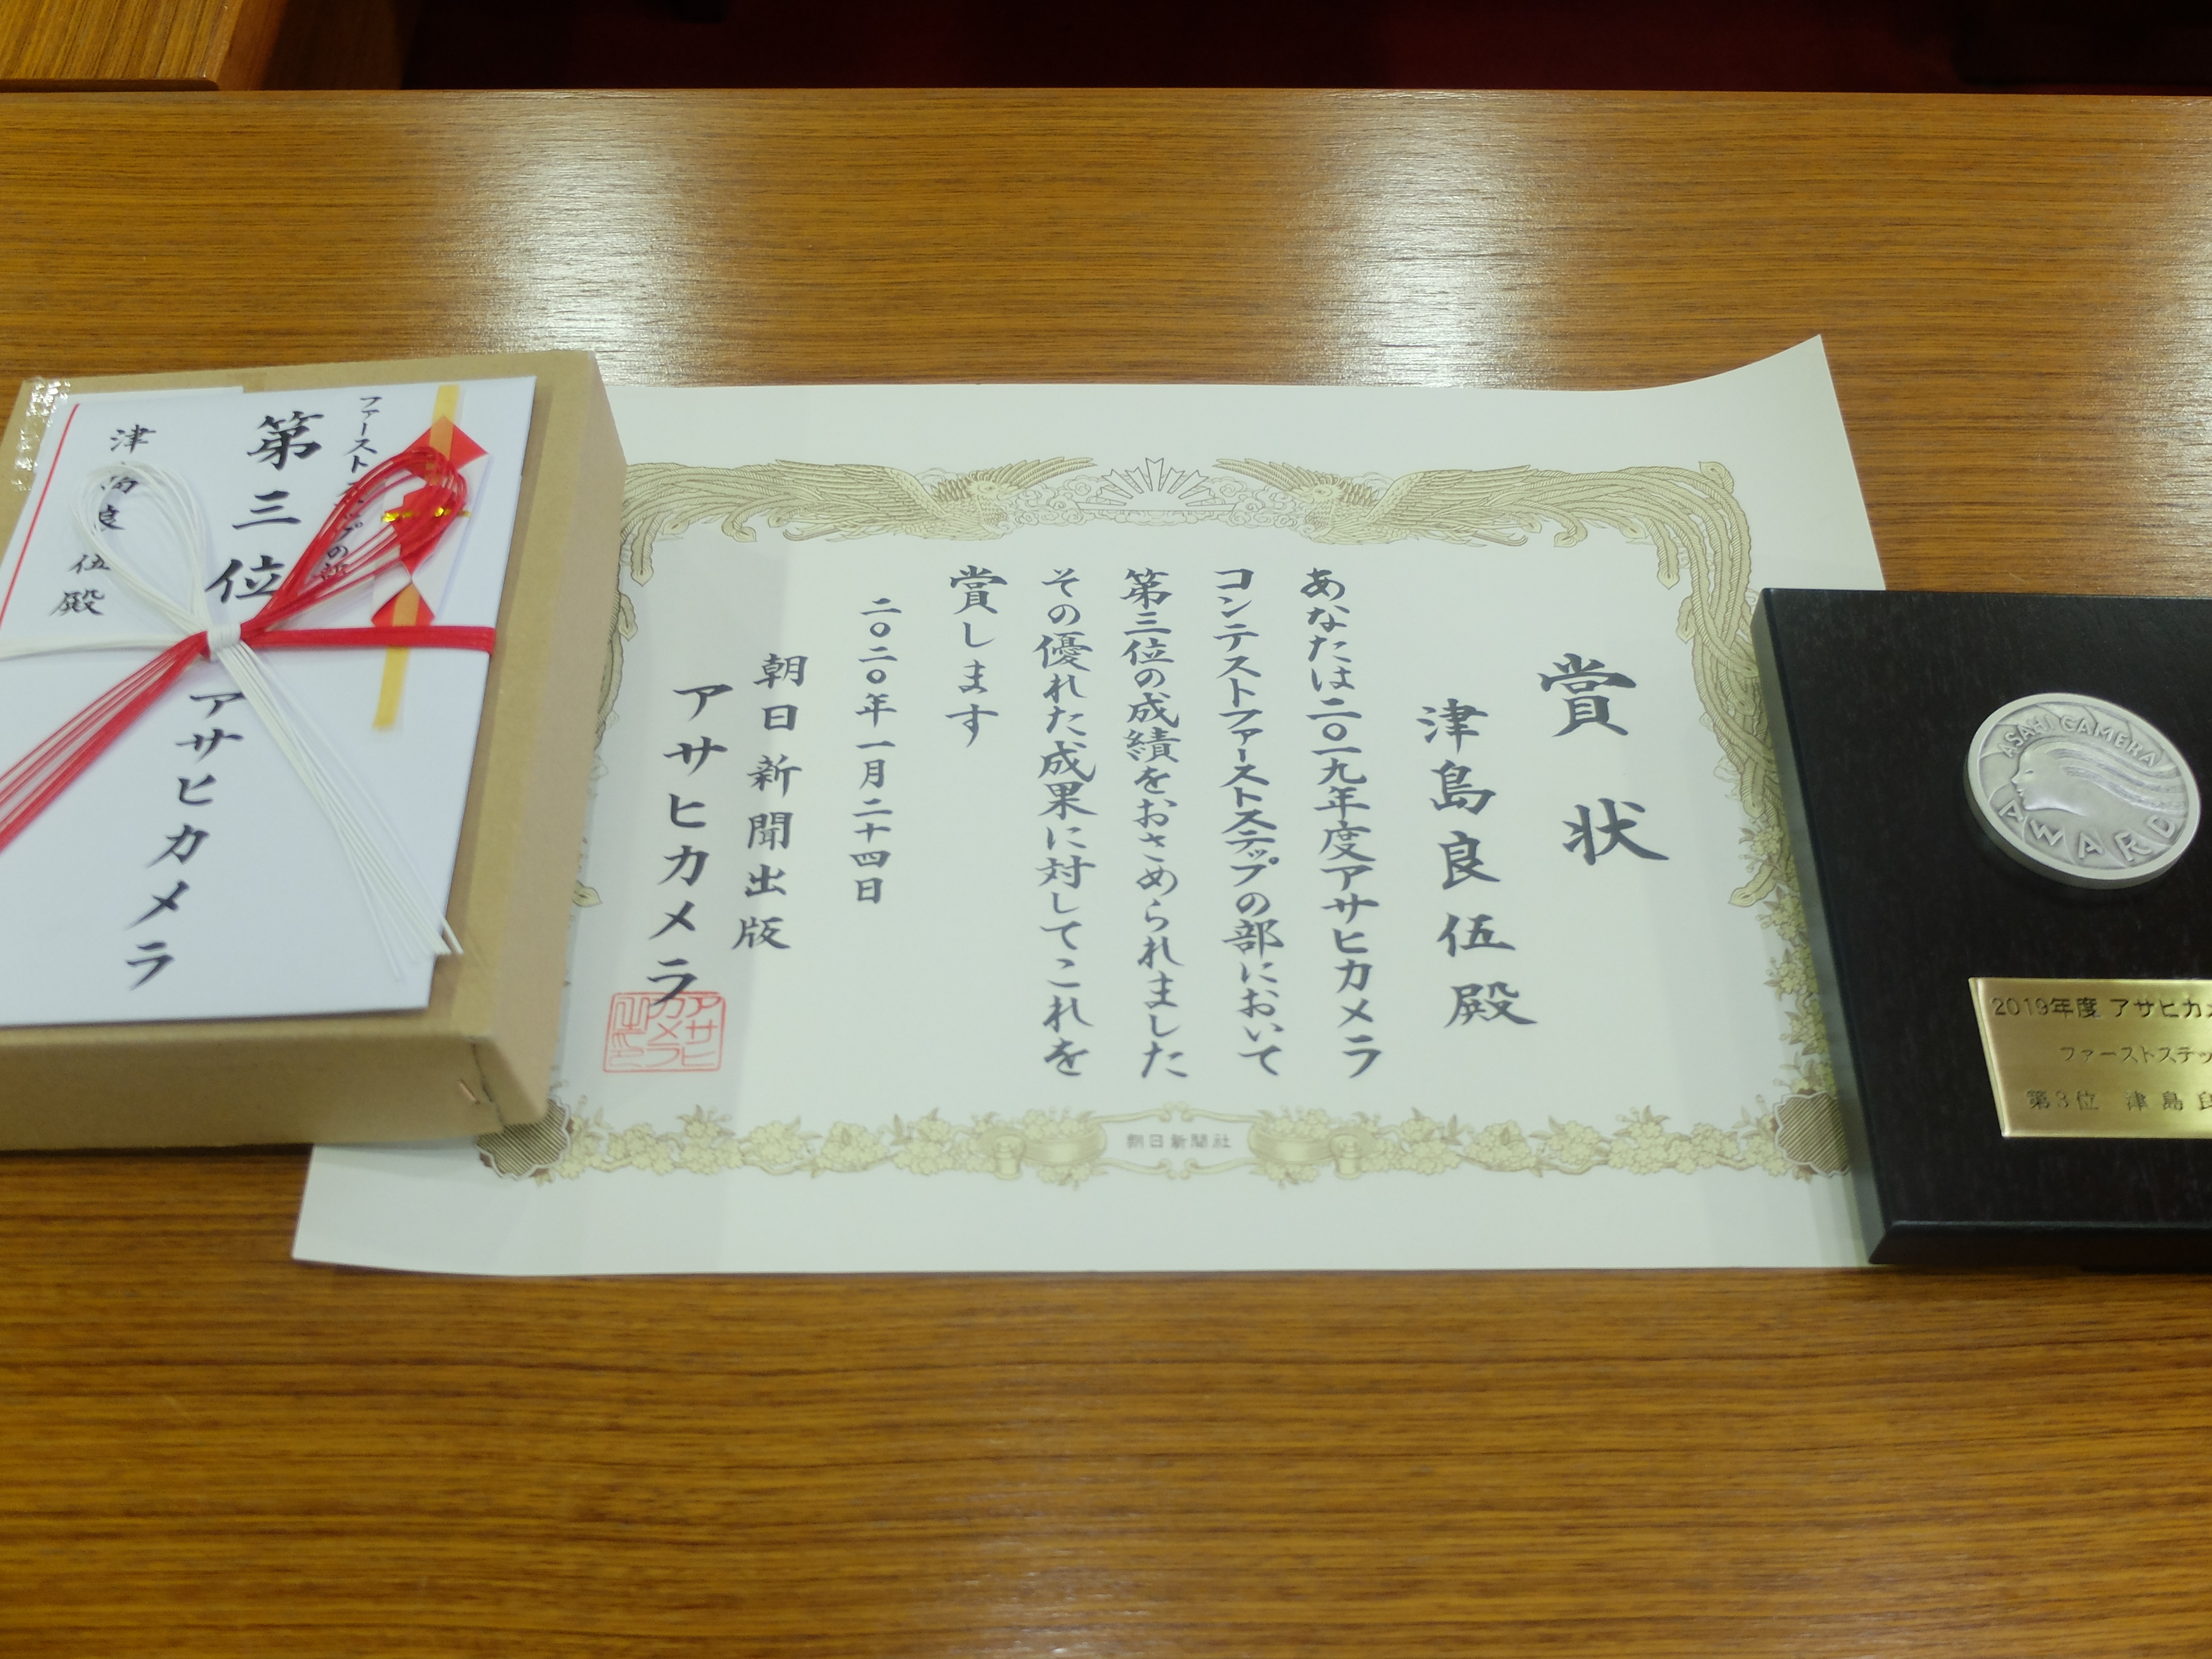 賞状
津島良伍殿
あなたは二〇一九年度アサヒカメラ
コンテストファーストステップの部において
第三位の成績をおさめられました
その優れた成果に対してこれを
賞します
二〇二〇年一月二十四日
朝日新聞出版
アサヒカメラ
アサヒ
カメラ
朝日新聞社
第三位
津島良伍殿
アサヒカメラ
ASAHI CAMERA
AWARD
2019年度 アサヒカメ
ファーストステッ
第3位 津島良